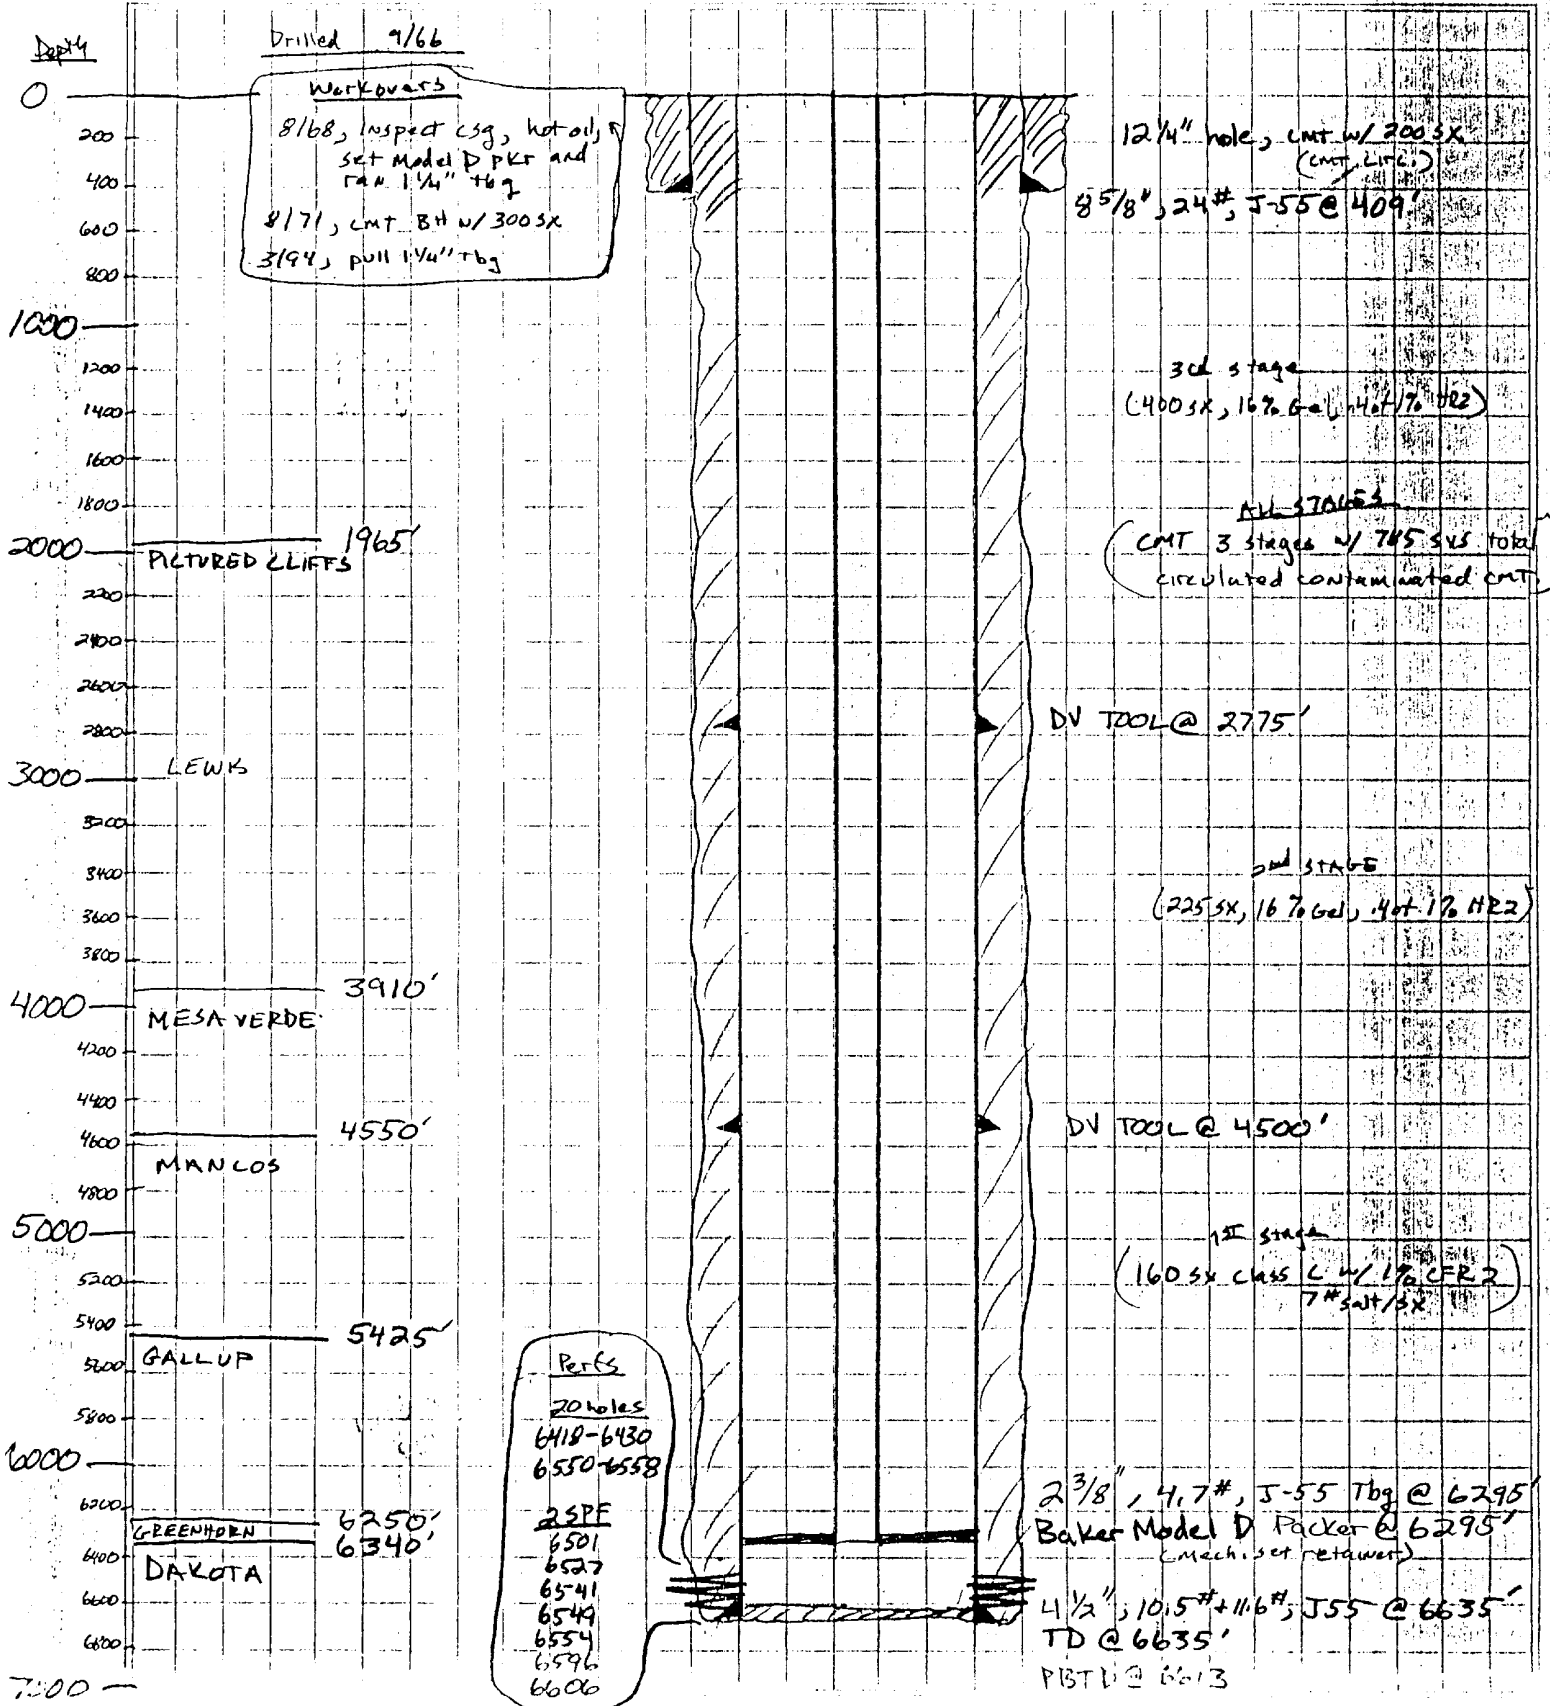 Depth
Drilled 9/66
Workovers
8/68, Inspect csg, hot oil,
set Model D pkr and
ran 1 1/4" tbg
8/71, cmt BH w/ 300 sx
3/94, pull 1 1/4" tbg
0
200
400
600
800
1000
1200
1400
1600
1800
2000
2200
2400
2600
2800
3000
3200
3400
3600
3800
4000
4200
4400
4600
4800
5000
5200
5400
5600
5800
6000
6200
6400
6600
6800
7000
1965'
PICTURED CLIFFS
LEWIS
3910'
MESA VERDE
4550'
MANCOS
5425'
GALLUP
6250'
GREENHORN
6340'
DAKOTA
Perfs
20 holes
6418-6430
6550-6558
2 SPF
6501
6527
6541
6549
6554
6596
6606
12 1/4" hole, cmt w/ 200 sx
(cmt circ.)
8 5/8", 24#, J-55 @ 409'
3rd stage
(400 sx, 16% Gel, .4 of 1% HR2)
ALL STAGES
(CMT 3 stages w/ 785 sxs total
circulated contaminated cmt)
DV TOOL @ 2775'
2nd STAGE
(225 sx, 16% Gel, .4 of 1% HR2)
DV TOOL @ 4500'
1st stage
(160 sx class C w/ 1% CFR2
7# salt/sx)
2 3/8", 4.7#, J-55 Tbg @ 6295'
Baker Model D Packer @ 6295'
(mech. set retainer)
4 1/2", 10.5# + 11.6#, J55 @ 6635'
TD @ 6635'
PBTD @ 6613